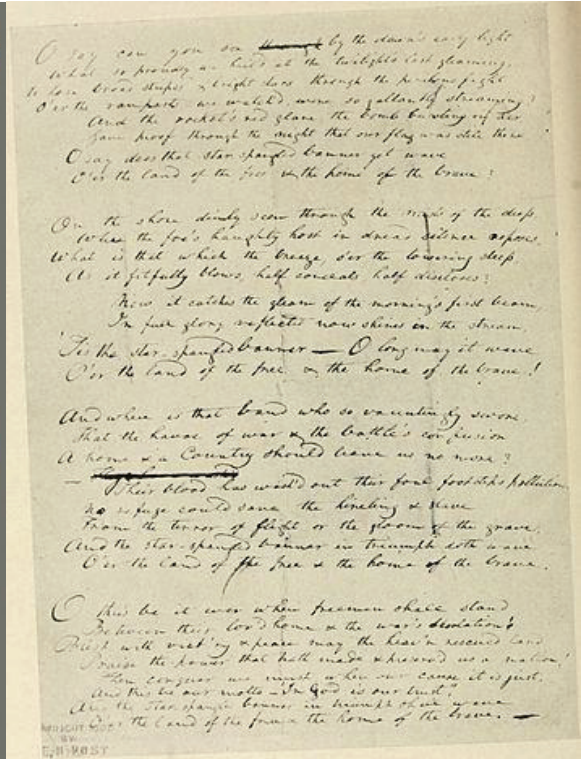 O say can you see ~~through~~ by the dawn's early light
What so proudly we hail'd at the twilight's last gleaming,
Whose broad stripes & bright stars through the perilous fight
O'er the ramparts we watch'd, were so gallantly streaming?
And the rocket's red glare, the bomb bursting in air,
Gave proof through the night that our flag was still there
O say does that star-spangled banner yet wave
O'er the land of the free & the home of the brave?
On the shore dimly seen through the mists of the deep,
Where the foe's haughty host in dread silence reposes,
What is that which the breeze, o'er the towering steep,
As it fitfully blows, half conceals half discloses?
Now it catches the gleam of the morning's first beam,
In full glory reflected now shines in the stream,
'Tis the star-spangled banner — O long may it wave
O'er the land of the free & the home of the brave!
And where is that band who so vauntingly swore
That the havoc of war & the battle's confusion
A home & a Country should leave us no more?
—
Their blood has wash'd out their foul footstep's pollution
No refuge could save the hireling & slave
From the terror of flight or the gloom of the grave,
And the star-spangled banner in triumph doth wave
O'er the land of the free & the home of the brave.
O thus be it ever when freemen shall stand
Between their lov'd home & the war's desolation!
Blest with vict'ry & peace may the heav'n rescued land
Praise the power that hath made & preserv'd us a nation!
Then conquer we must, when our cause it is just,
And this be our motto — "In God is our trust,"
And the star-spangled banner in triumph shall wave
O'er the land of the free & the home of the brave. —
COPYRIGHT
BY